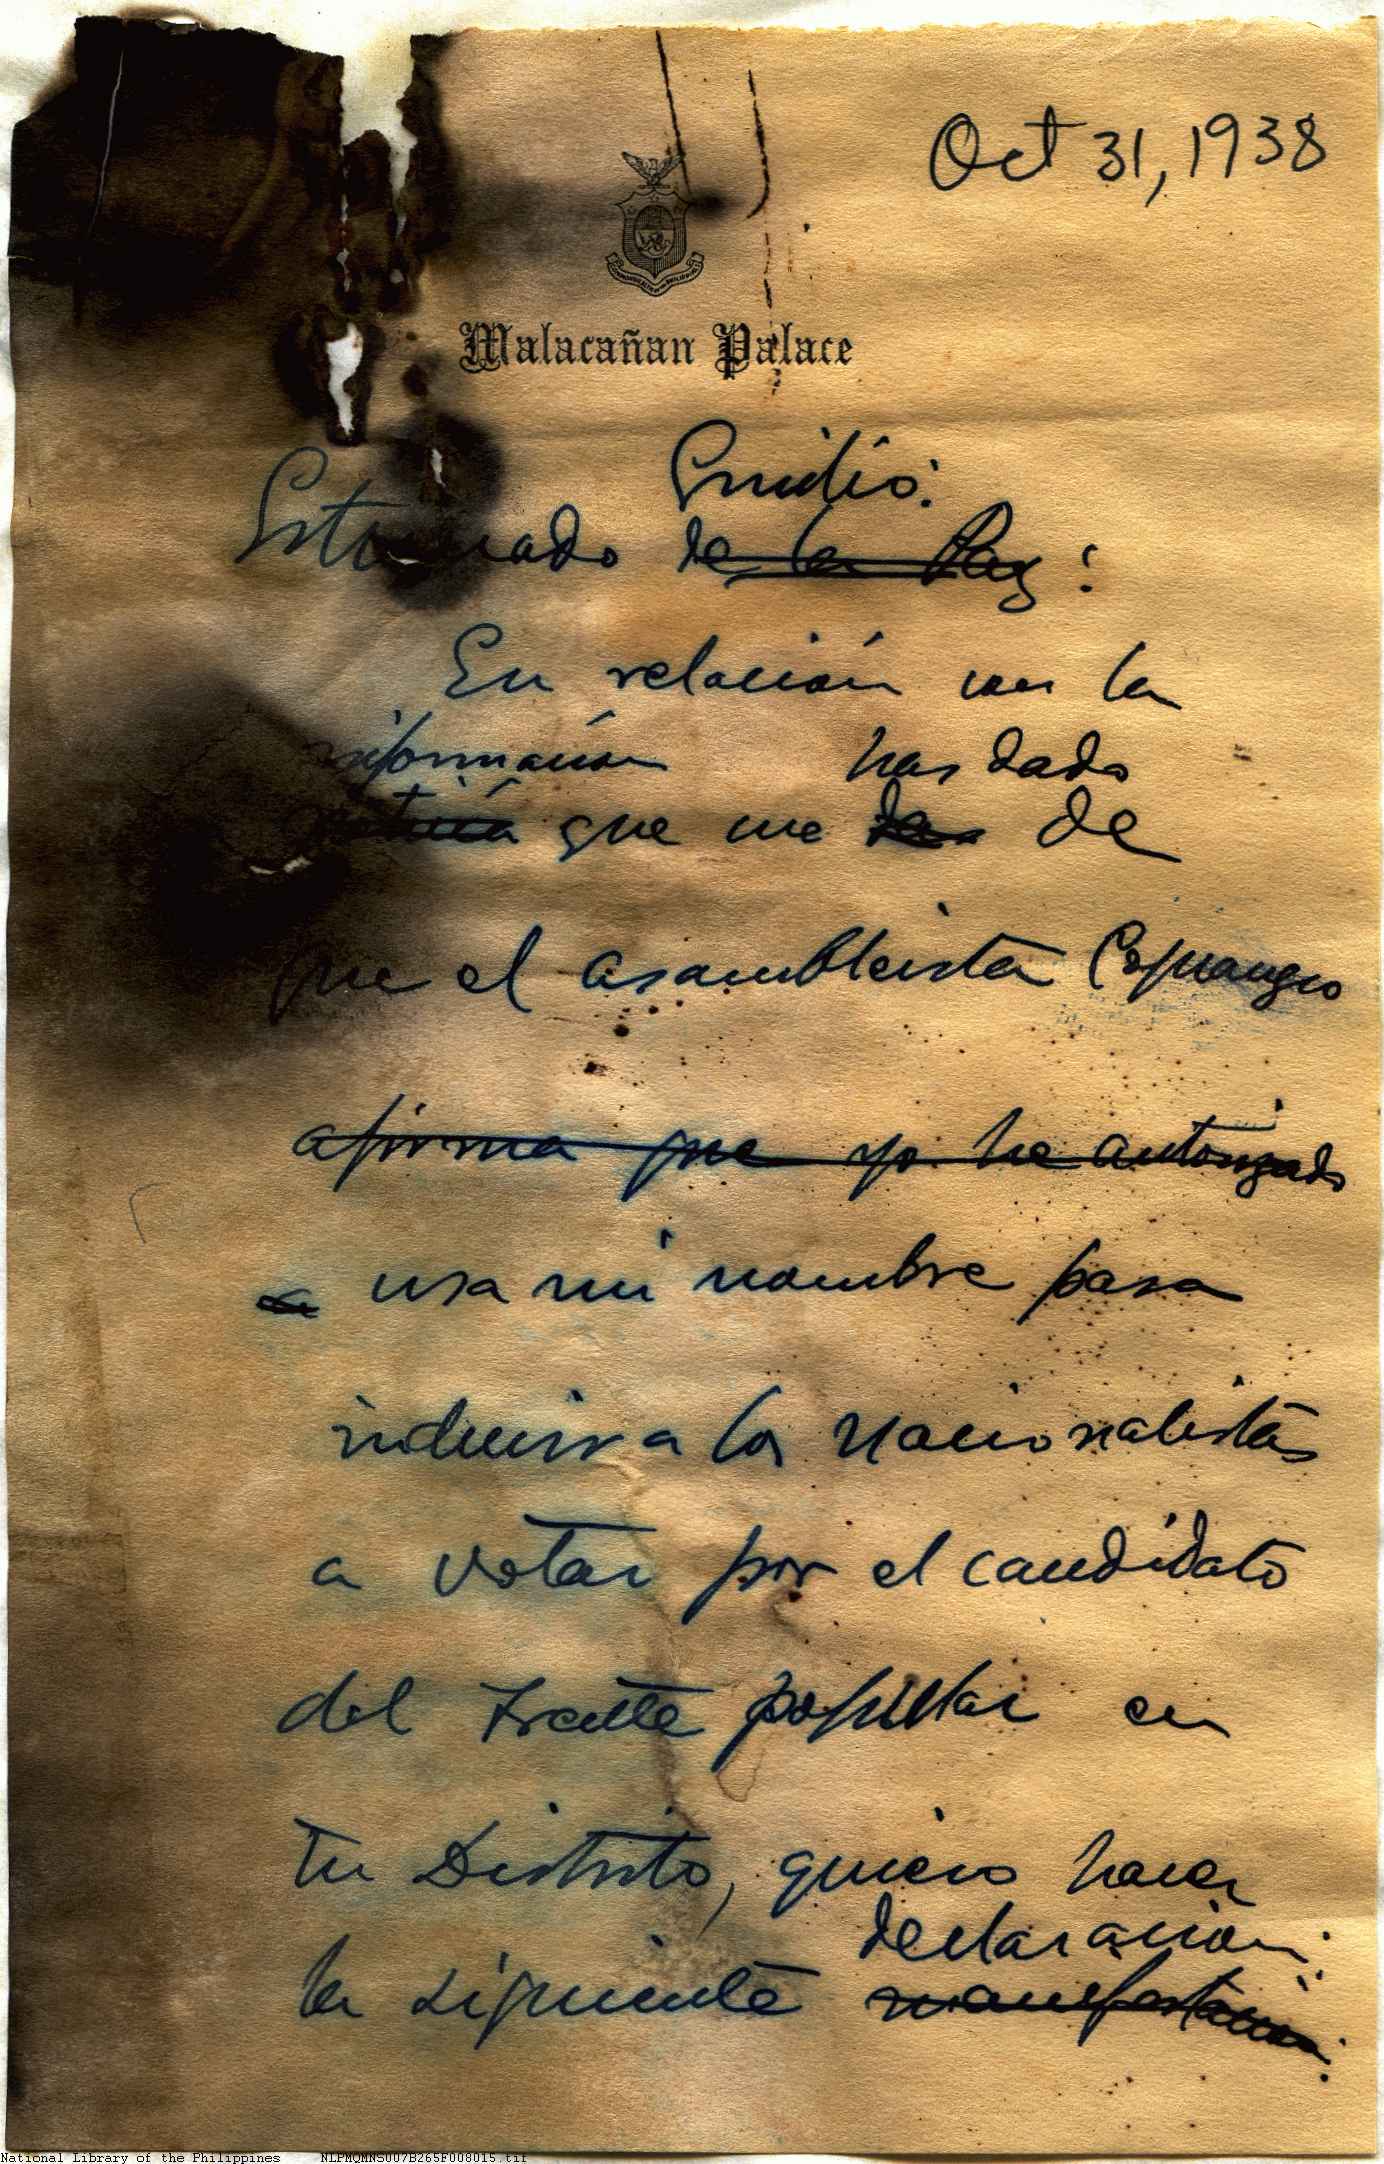 Oct 31, 1938
Malacañan Palace
Emilio:
Estimado de la Paz:
En relación con la
información has dado
noticia que me das de
que el asambleista Cojuangco
afirma que yo he autorizado
a usa mi nombre para
inducir a los nacionalistas
a votar por el candidato
del Frente popular en
tu Distrito, quiero hacer
declaración:
la siguiente manifestacion:
National Library of the Philippines NLPMQMNS007B265F008015.tif